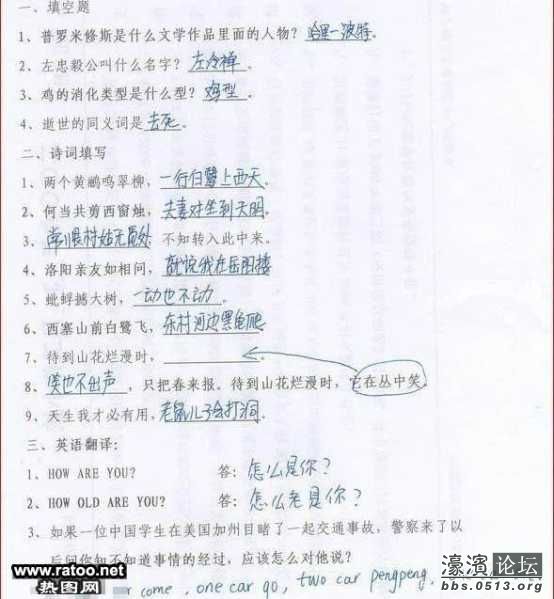 一、填空题
1、普罗米修斯是什么文学作品里面的人物？哈里—波特.
2、左忠毅公叫什么名字？左冷禅.
3、鸡的消化类型是什么型？鸡型.
4、逝世的同义词是去死.
二、诗词填写
1、两个黄鹂鸣翠柳，一行白鹭上西天.
2、何当共剪西窗烛，夫妻对坐到天明.
3、常恨村姑无觅处 不知转入此中来。
4、洛阳亲友如相问，就说我在岳阳楼
5、蚍蜉撼大树，一动也不动.
6、西塞山前白鹭飞，东村河边黑龟爬
7、待到山花烂漫时，
8、俏也不出声，只把春来报。待到山花烂漫时，它在丛中笑。
9、天生我才必有用，老鼠儿子会打洞.
三、英语翻译：
1、HOW ARE YOU? 答：怎么是你？
2、HOW OLD ARE YOU? 答：怎么老是你？
3、如果一位中国学生在美国加州目睹了一起交通事故，警察来了以
后问你知不知道事情的经过，应该怎么对他说？
come, one car go, two car pengpeng,
www.ratoo.net
热图网
濠滨论坛
bbs.0513.org